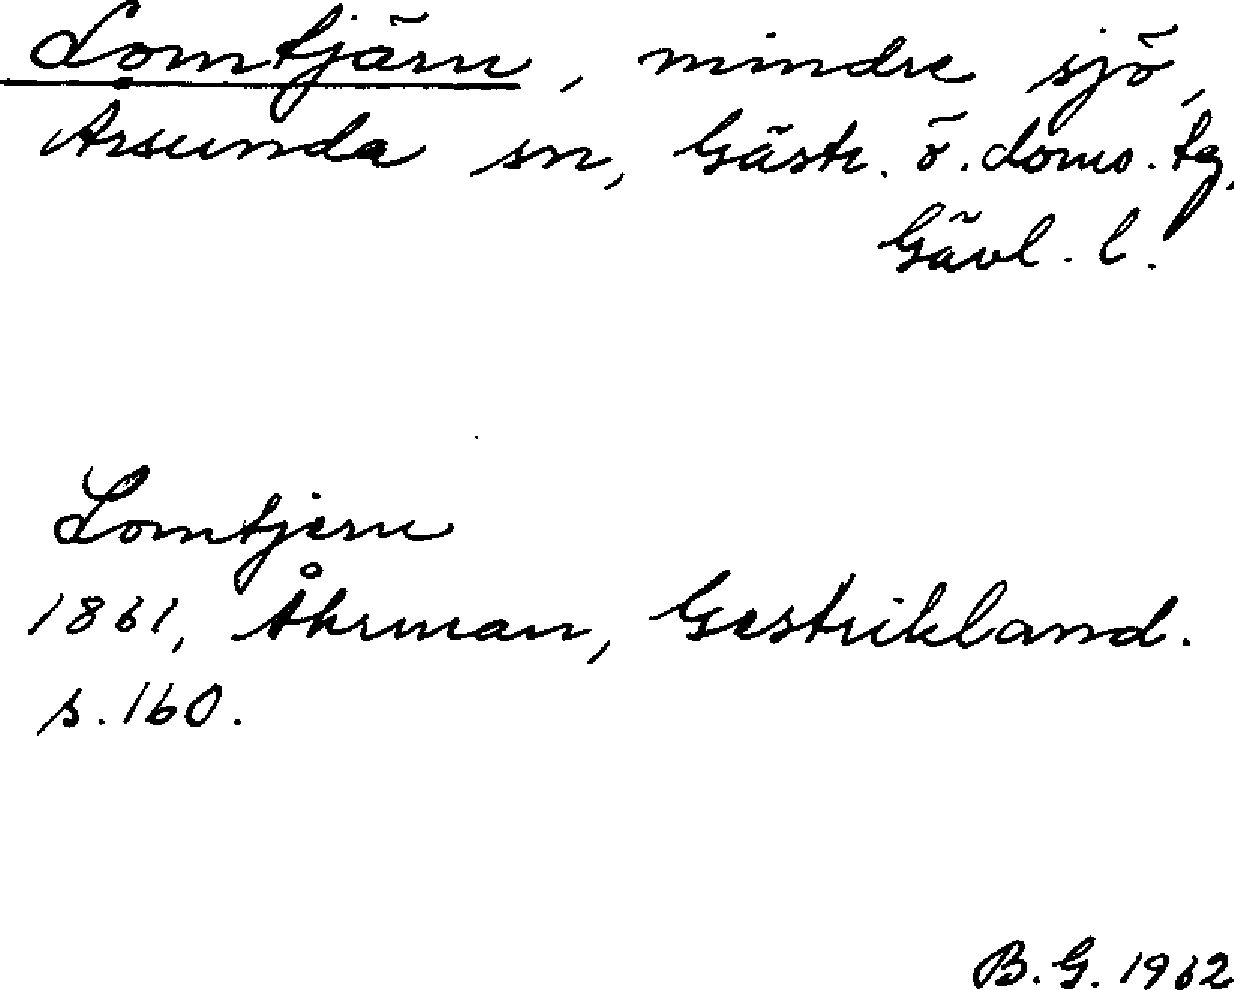 Lomtjärn, mindre sjö,
Årsunda sn, Gästr. ö. doms. tg,
Gävl. l.
Lomtjern
1861, Åhrman, Gestrikland.
s. 160.
B. G. 1962